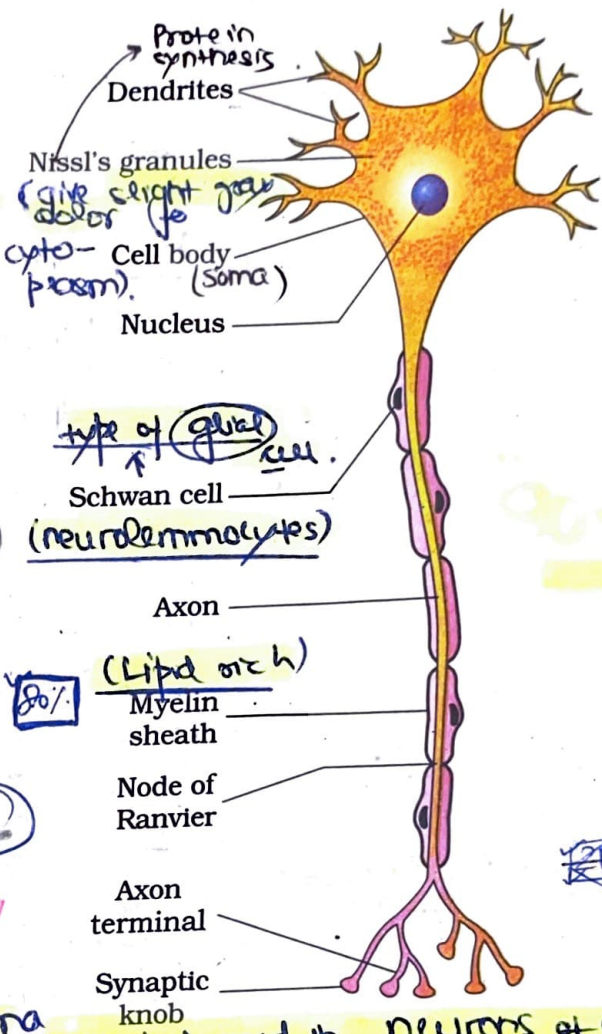 Protein
synthesis
Dendrites
Nissl's granules
(give slight grey
color to
cyto-
plasm).
Cell body
(soma)
Nucleus
type of glial
cell.
Schwan cell
(neurolemmocytes)
Axon
(Lipid rich)
80%
Myelin
sheath
Node of
Ranvier
Axon
terminal
Synaptic
knob
neurons of